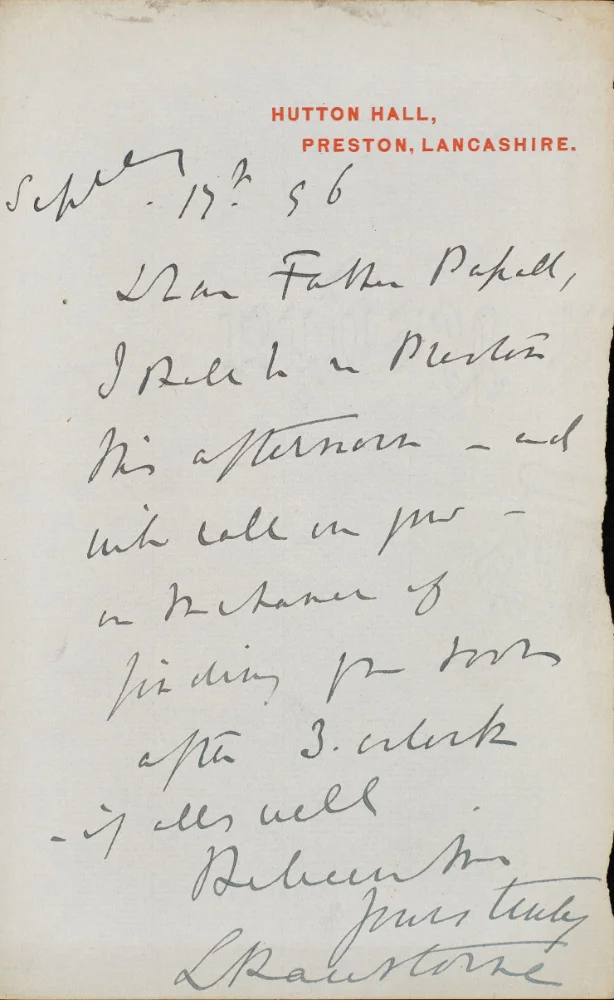 HUTTON HALL,
PRESTON, LANCASHIRE.
Septber. 17th 96
Dear Father Papall,
I shall be in Preston
this afternoon – and
will call on you –
on the chance of
finding you soon
after 3. oclock
– if all's well
Believe me
yours truly
L Rawstorne